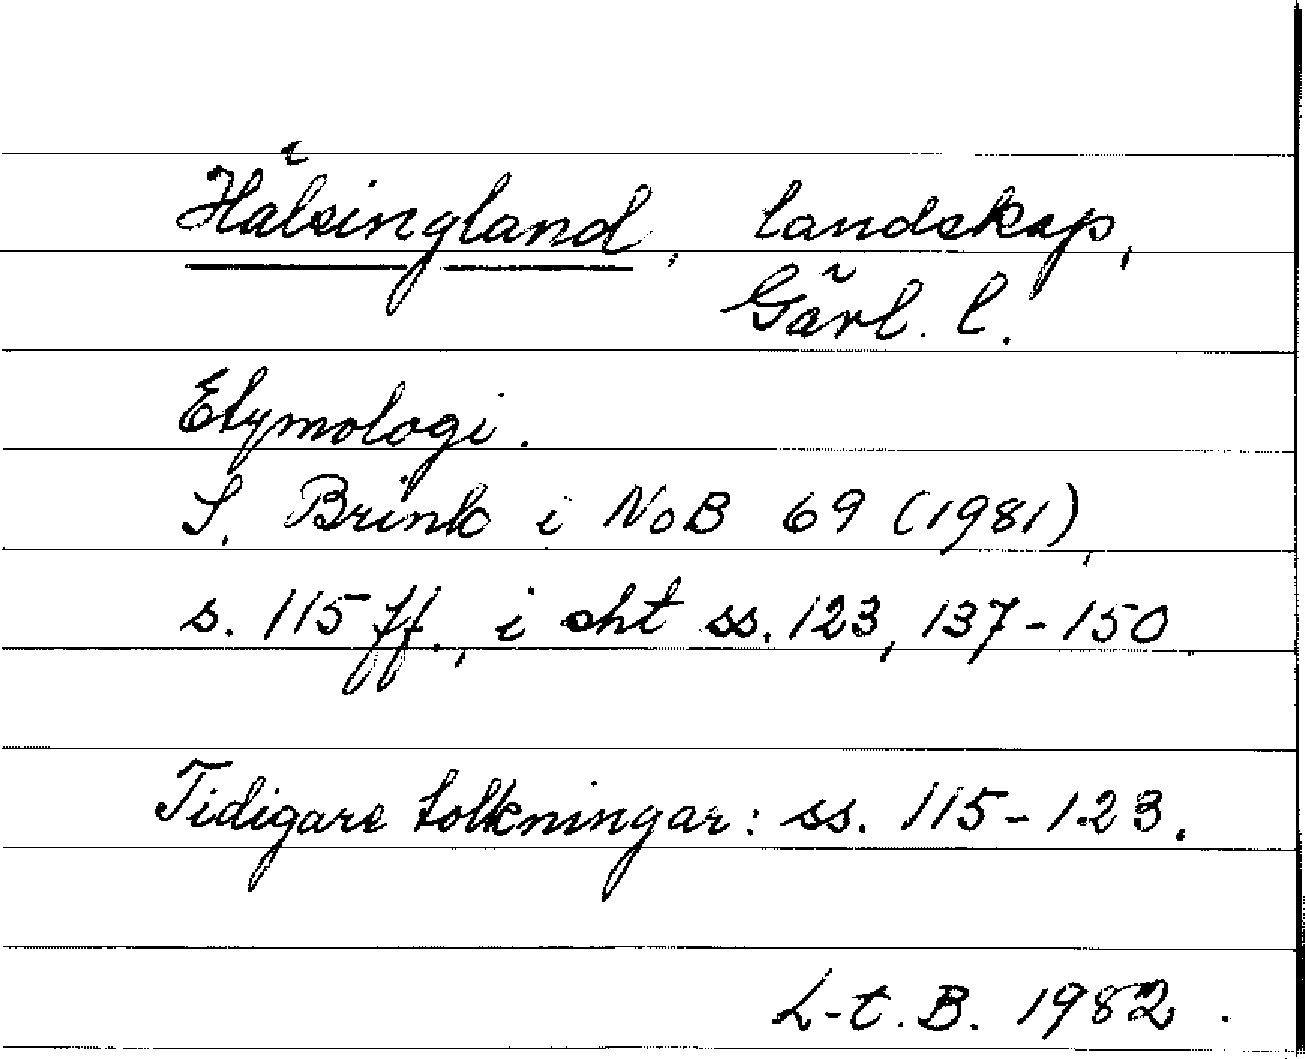 Hälsingland, landskap,
Gävl. l.
Etymologi.
S. Brink i NoB 69 (1981),
s. 115 ff., i sht ss. 123, 137-150.
Tidigare tolkningar: ss. 115-123.
L-t. B. 1982.